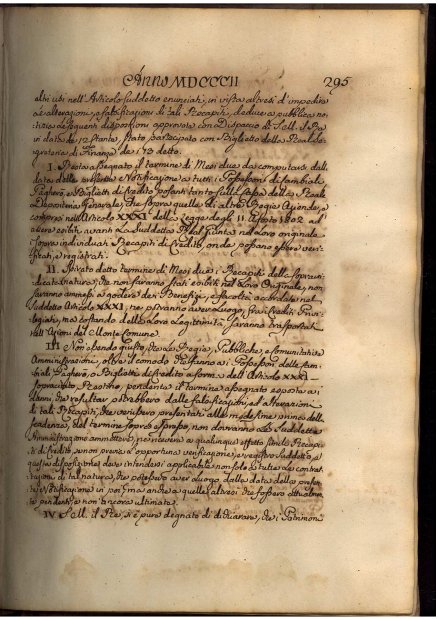 ANNO MDCCCII 295
altri usi nell'Articolo suddetto enunciati, in vista altresì d'impedire
le alterazioni, e falsificazioni di tali Recapiti, deduce a pubblica no-
tizia le seguenti disposizioni approvate con Dispaccio di S. M. il Re
in data de 12 stante, stato partecipato con Biglietto della Real Se-
greteria di Finanze de 13 detto.
I. Resta assegnato il termine di Mesi due da computarsi dalla
data della presente Notificazione a tutti i Possessori di Cambiali
Pagherò, e Biglietti di Credito pesanti tanto sulla stessa della Reale
Depositeria Generale, che sopra quelle di altre Regie Aziende, e
compresi nell'Articolo XXXI della Legge degli 11 Agosto 1802 ad
avere esibiti avanti la suddetta Real Giunta nel loro originale
i sopra individuati Recapiti di Credito, onde possano essere veri-
ficati, e registrati.
II. Spirato detto termine di Mesi due i Recapiti della sopra in-
dicata natura, che non saranno stati esibiti nel loro Originale, non
saranno ammessi a godere dei Benefizj, e facoltà accordate nel
suddetto Articolo XXXI, nè potranno aver luogo, fra i Crediti Privi-
legiati, ma costando della loro Legittimità saranno trasportati
nell'Azioni del Monte Comune
III. Non essendo giusto, che le Regie Pubbliche, e Comunitative
Amministrazioni, oltre il comodo che fanno ai Possessori delle Cam-
biali, Pagherò, o Biglietti di Credito a forma dell'Articolo XXXI
sopracitato restino, pendente il termine assegnato esposte ai
danni, che resultar potrebbero dalle falsificazioni, ed alterazioni
di tali Recapiti, che venissero presentati alle medesime prima della
scadenza, del termine sopra espresso, non dovranno le suddette
Amministrazioni ammettere, nè ricevere a qualunque effetto simili Recapiti
di Credito, se non previa l'opportuna verificazione, e registro suddetto, e
questa disposizione deve intendersi applicabile non solo a tutte le contrat-
tazioni di tal natura, che potessero aver luogo dalla data della presen-
te Notificazione in poi, ma anche a quelle altresì che fossero attualmen-
te pendenti, e non ancora ultimate.
IV. S. M. il Re, si è pure degnato di dichiarare, che i Patrimoni